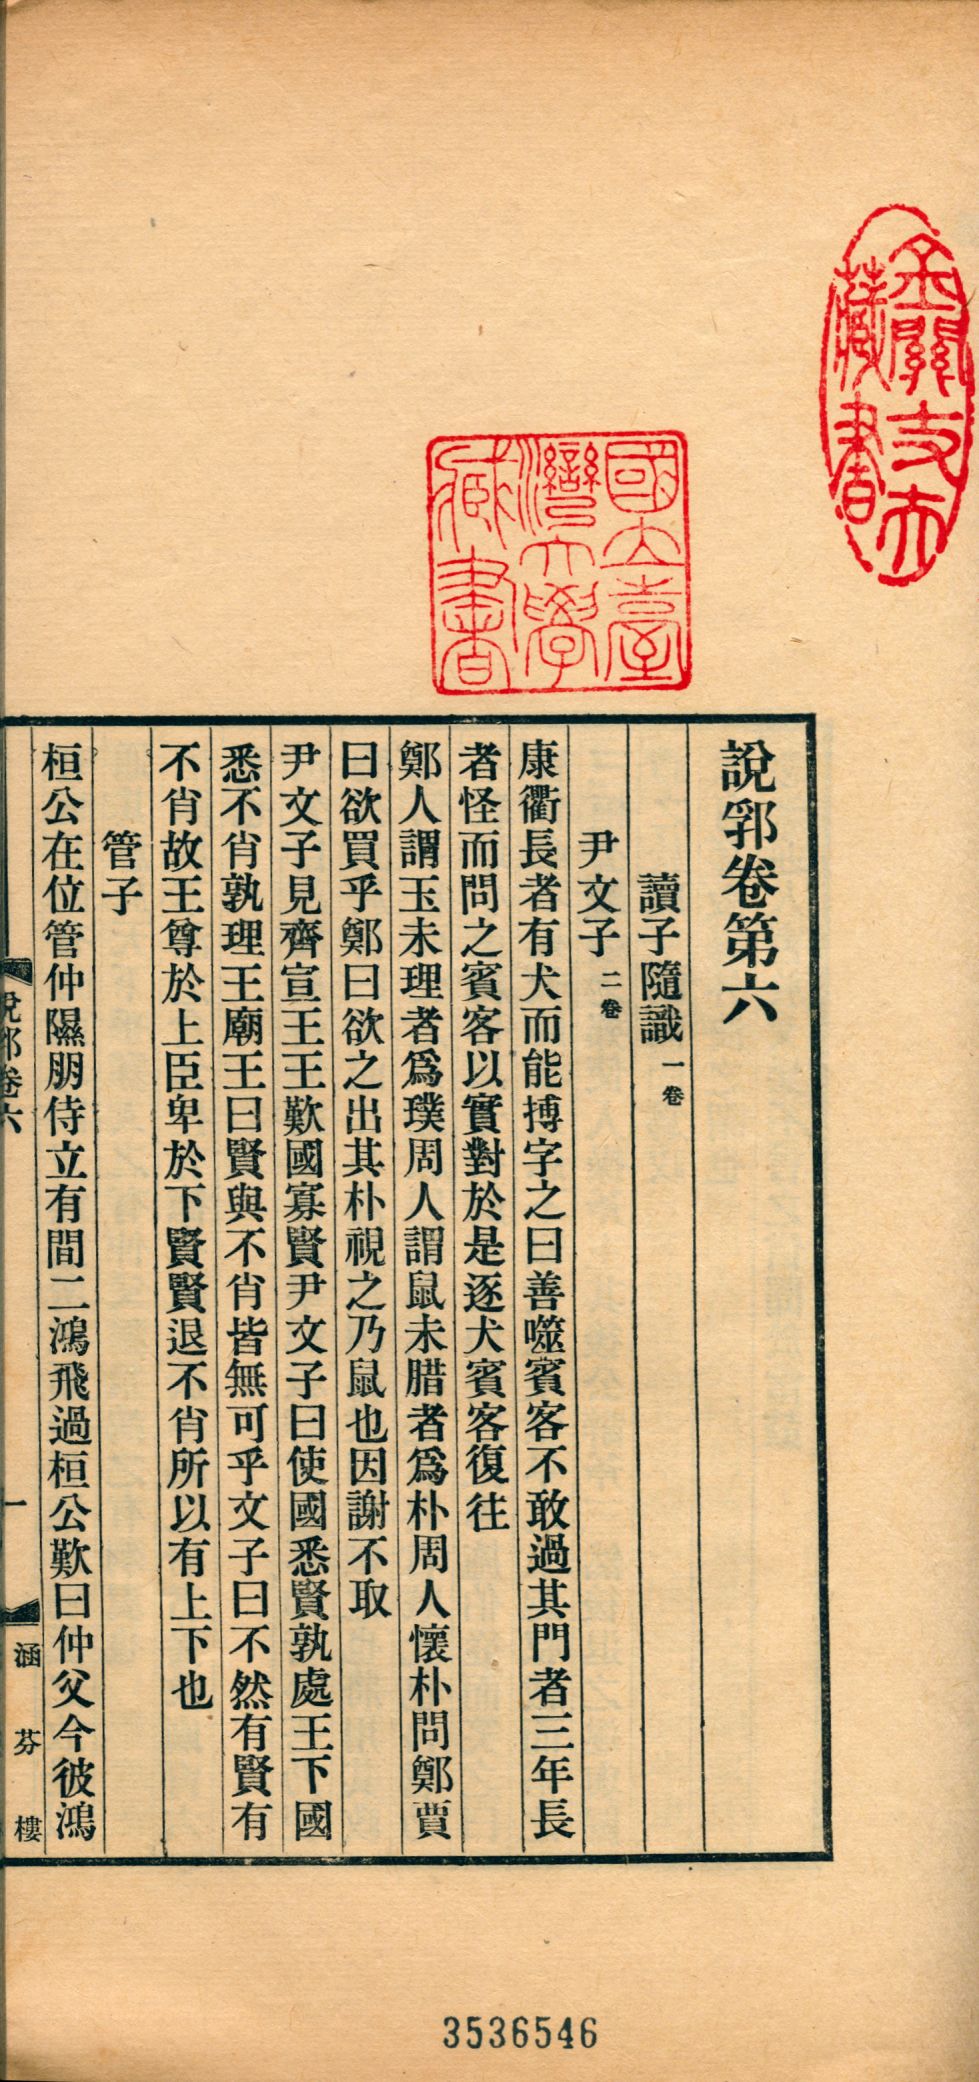 說郛卷第六
讀子隨識一卷
尹文子二卷
康衢長者有犬而能搏字之曰善噬賓客不敢過其門者三年長
者怪而問之賓客以實對於是逐犬賓客復往
鄭人謂玉未理者爲璞周人謂鼠未腊者爲朴周人懷朴問鄭賈
曰欲買乎鄭曰欲之出其朴視之乃鼠也因謝不取
尹文子見齊宣王王歎國寡賢尹文子曰使國悉賢孰處王下國
悉不肖孰理王廟王曰賢與不肖皆無可乎文子曰不然有賢有
不肖故王尊於上臣卑於下賢賢退不肖所以有上下也
管子
桓公在位管仲隰朋侍立有間二鴻飛過桓公歎曰仲父今彼鴻
說郛卷六
一
涵芬樓
國立臺
灣大學
藏書
藏書
3536546